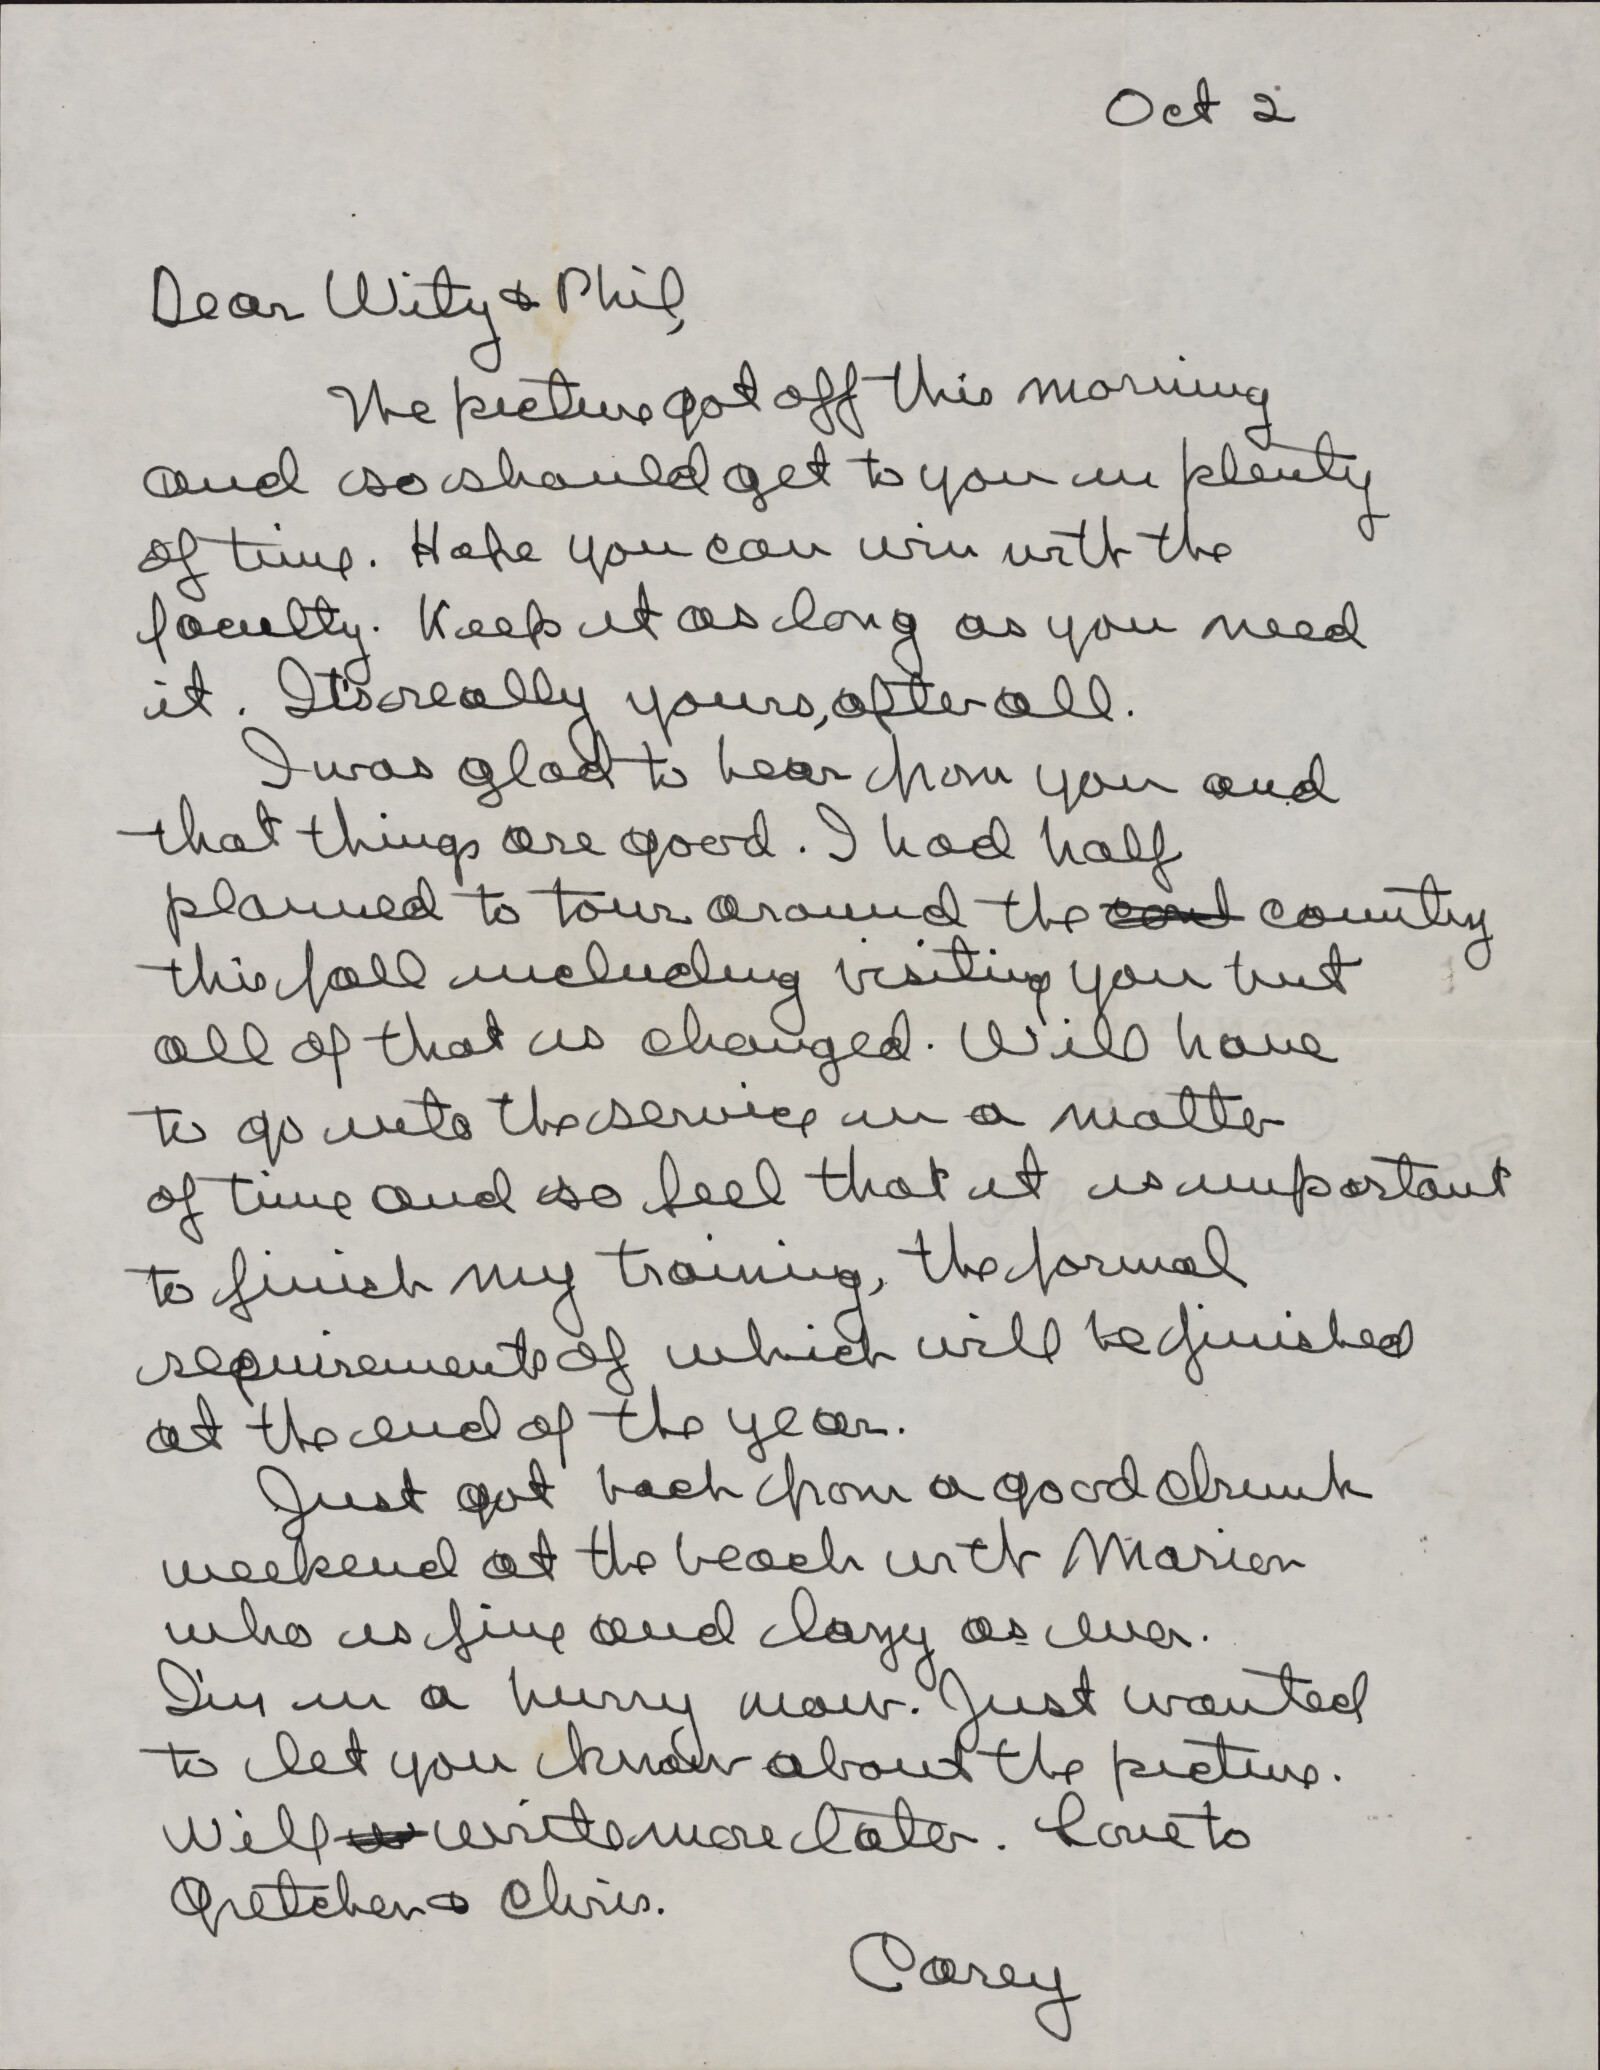 Oct 2
Dear Wity & Phil,
The picture got off this morning
and so should get to you in plenty
of time. Hope you can win with the
faculty. Keep it as long as you need
it. It's really yours, after all.
I was glad to hear from you and
that things are good. I had half
planned to tour around the country
this fall including visiting you but
all of that is changed. Will have
to go into the service in a matter
of time and so feel that it is important
to finish my training, the formal
requirements of which will be finished
at the end of the year.
Just got back from a good drunk
weekend at the beach with Marion
who is fine and lazy as ever.
I'm in a hurry now. Just wanted
to let you know about the picture.
Will write more later. Love to
Gretchen & Chris.
Carey